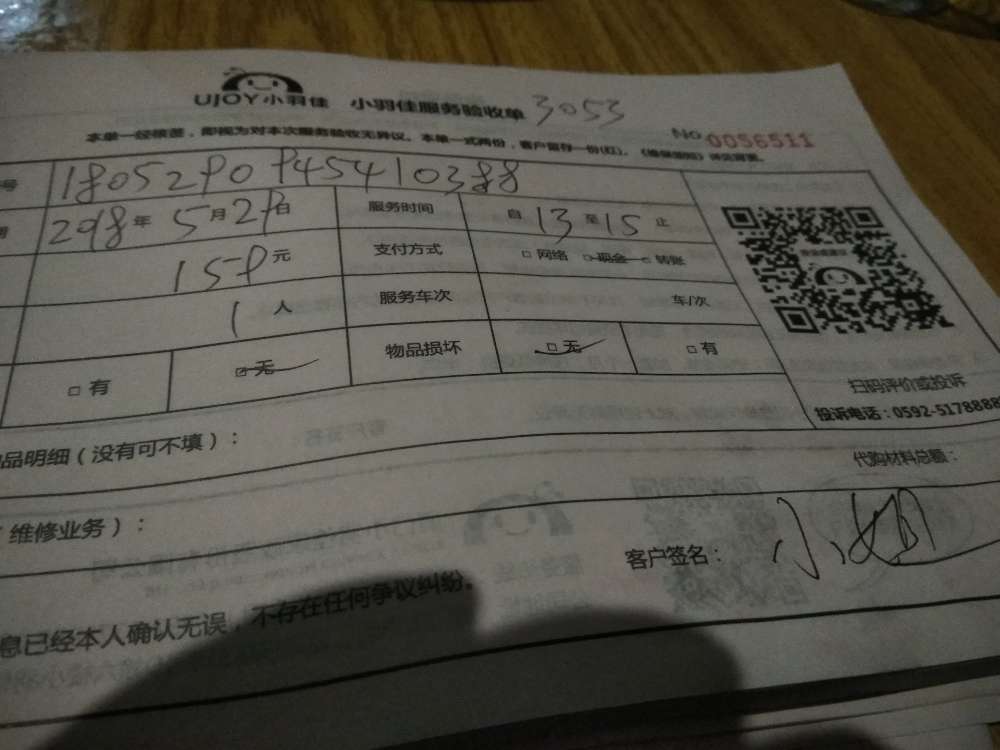 UJOY小羽佳 小羽佳服务验收单 3053
No 0056511
本单一经核签，即视为对本次服务验收无异议。本单一式两份，客户留存一份(红)。
号 1805290945410388
2018年5月29日 服务时间 自13至15止
159元 支付方式 □网络 □现金 □转账
1人 服务车次 车/次
□有 □无 物品损坏 □无 □有
扫码评价或投诉
投诉电话：0592-5178888
品明细（没有可不填）：
代购材料总额：
维修业务）：
客户签名：
息已经本人确认无误，不存在任何争议纠纷。